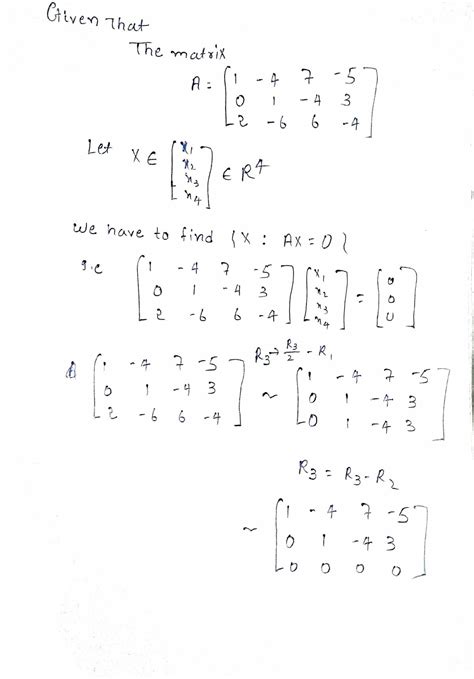 Given That
The matrix
A = [1 -4 7 -5
0 1 -4 3
2 -6 6 -4]
Let X ∈ [x1 x2 x3 x4] ∈ R4
We have to find {X : AX = 0}
i.e [1 -4 7 -5
0 1 -4 3
2 -6 6 -4] [x1 x2 x3 x4] = [0 0 0]
[1 -4 7 -5
0 1 -4 3
2 -6 6 -4]
R3 → R3/2 - R1
~ [1 -4 7 -5
0 1 -4 3
0 1 -4 3]
R3 = R3 - R2
~ [1 -4 7 -5
0 1 -4 3
0 0 0 0]